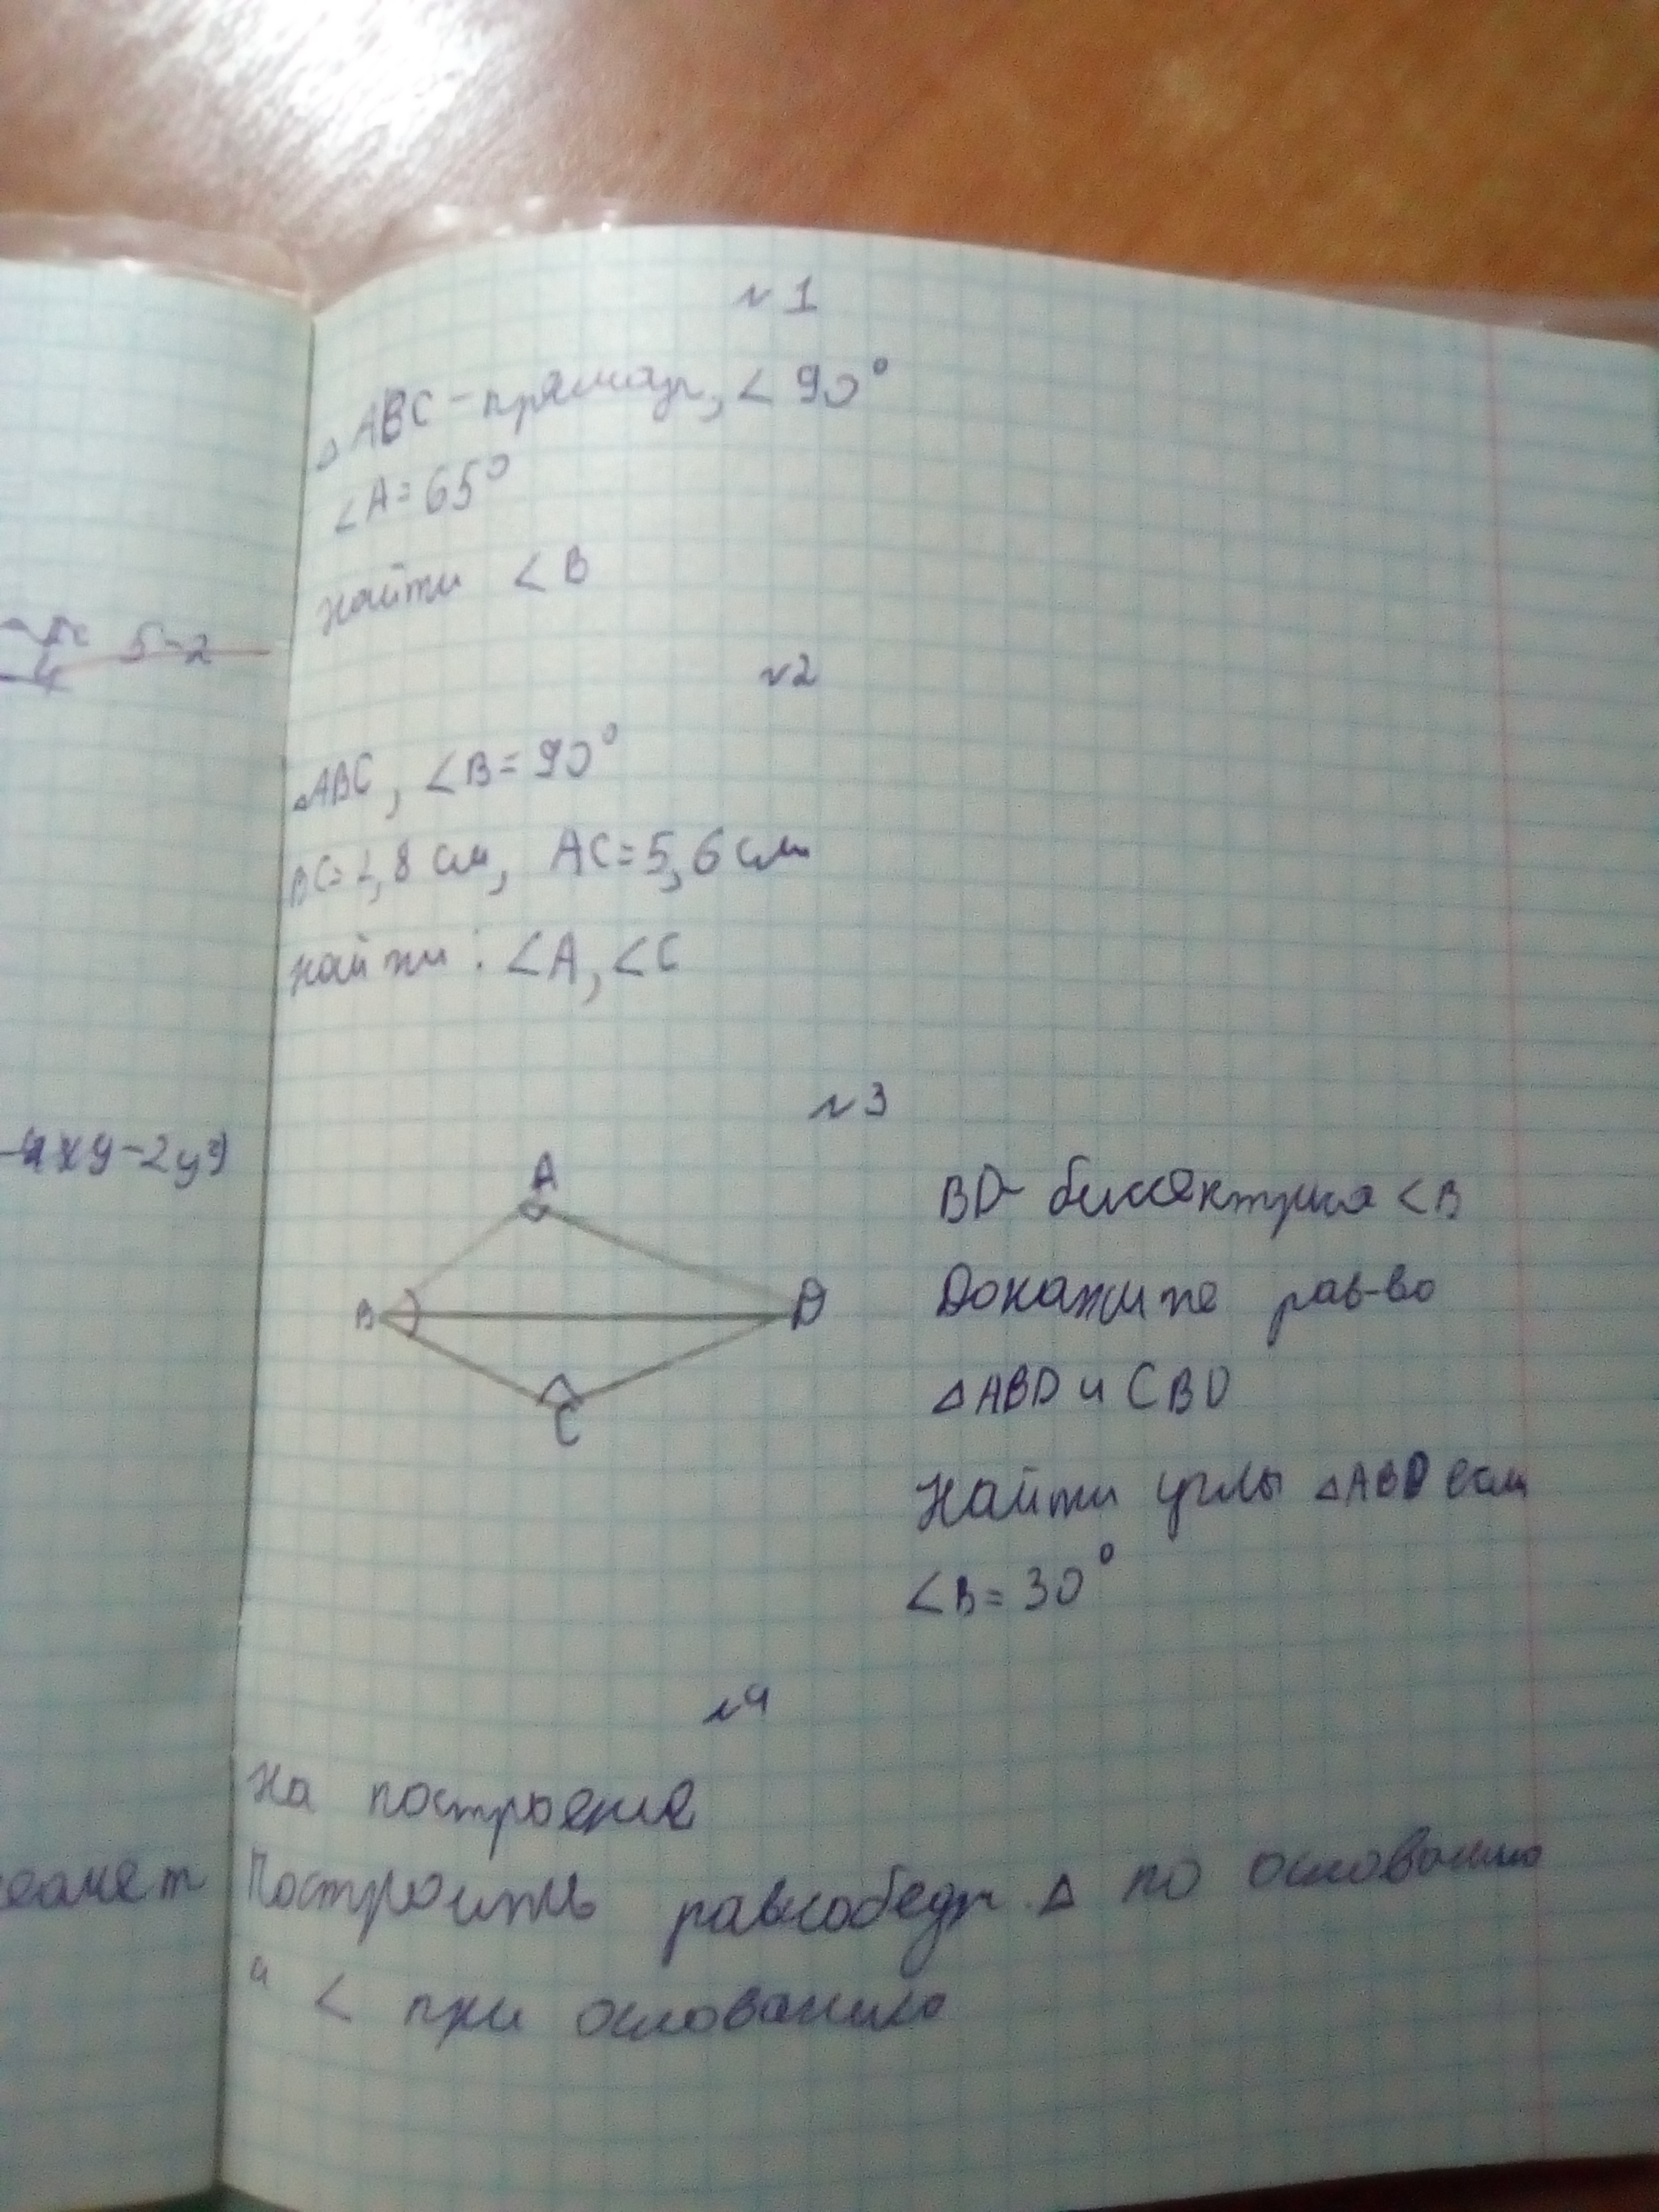 №1
△ABC - прямоуг, ∠90°
∠A = 65°
найти ∠B
№2
△ABC, ∠B = 90°
BC = 2,8 см, AC = 5,6 см
найти: ∠A, ∠C
№3
A
B
D
C
BD - биссектриса ∠B
Докажите рав-во
△ABD и CBD
Найти углы △ABD если
∠B = 30°
№4
На построение
Построить равнобедр. △ по основанию
и ∠ при основании
5-2
4
-4xy-2y²)